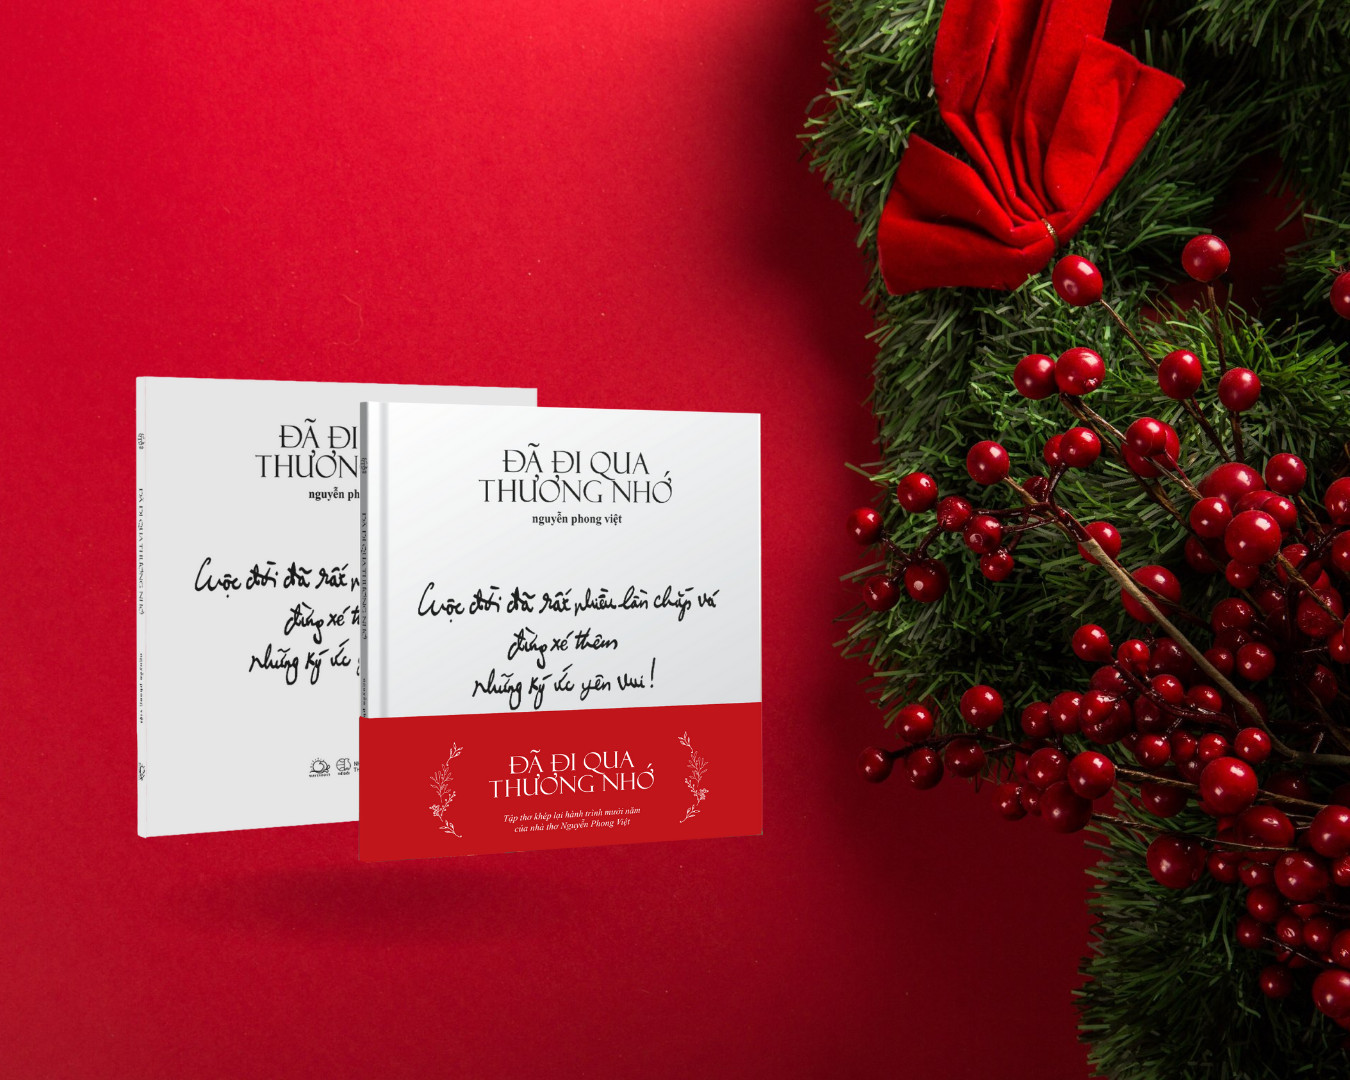 ĐÃ ĐI
THƯƠN
nguyễn ph
Cuộc đời đã rất
đừng xé
những ký ức
ĐÃ ĐI QUA THƯƠNG NHỚ
nguyễn phong việt
ĐÃ ĐI QUA
THƯƠNG NHỚ
nguyễn phong việt
Cuộc đời đã rất nhiều lần chắp vá
đừng xé thêm
những ký ức yên vui!
ĐÃ ĐI QUA THƯƠNG NHỚ
ĐÃ ĐI QUA
THƯƠNG NHỚ
Tập thơ khép lại hành trình mười năm
của nhà thơ Nguyễn Phong Việt